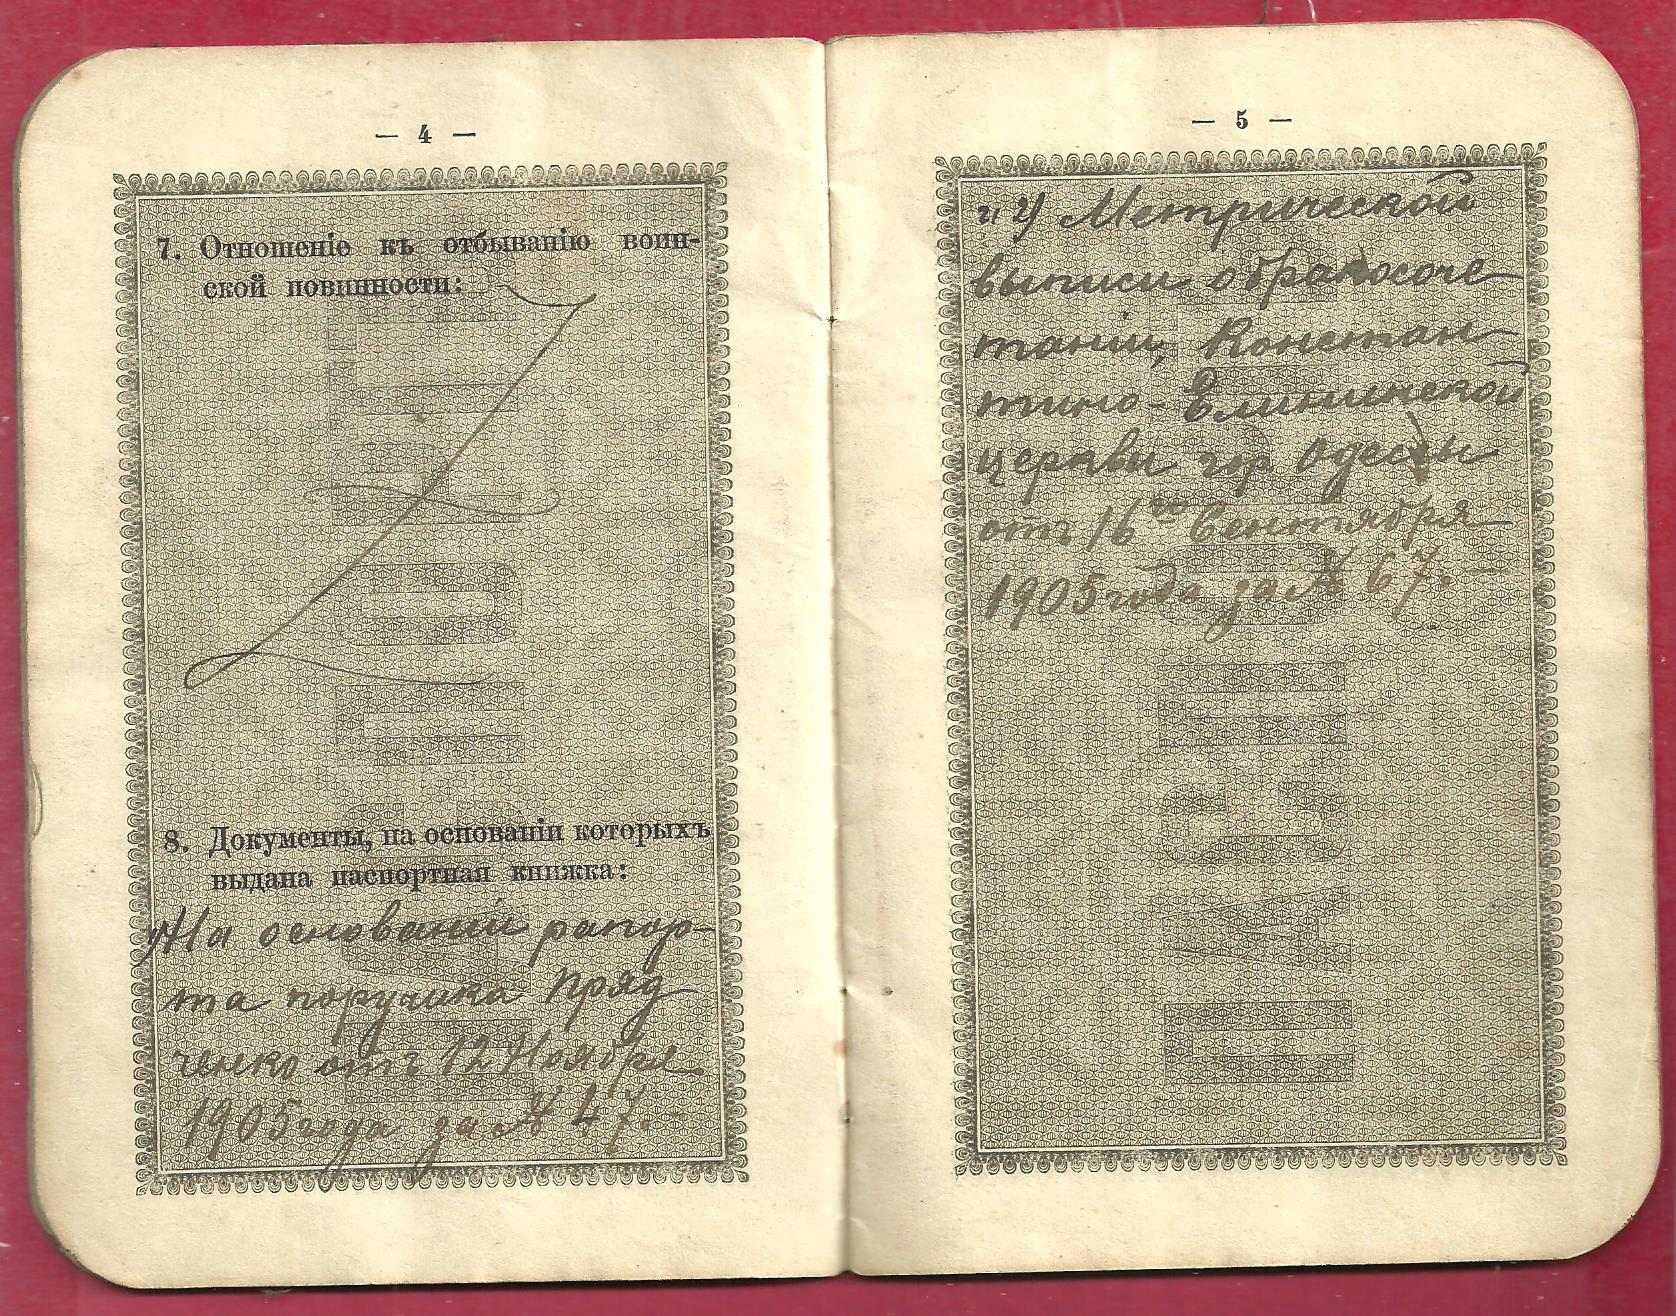 — 4 —
7. Отношеніе къ отбыванію воин-
ской повинности:
8. Документы, на основаніи которыхъ
выдана паспортная книжка:
На основаніи рапор-
та поручика Пряд
ченко отъ 12 Ноября
1905 года за № 47.–
— 5 —
и 2) Метрической
выписи о бракосоче
таніи, Констан
тино-Еленинской
церкви гор Одессы
отъ 16го Сентября
1905 года за № 67.–